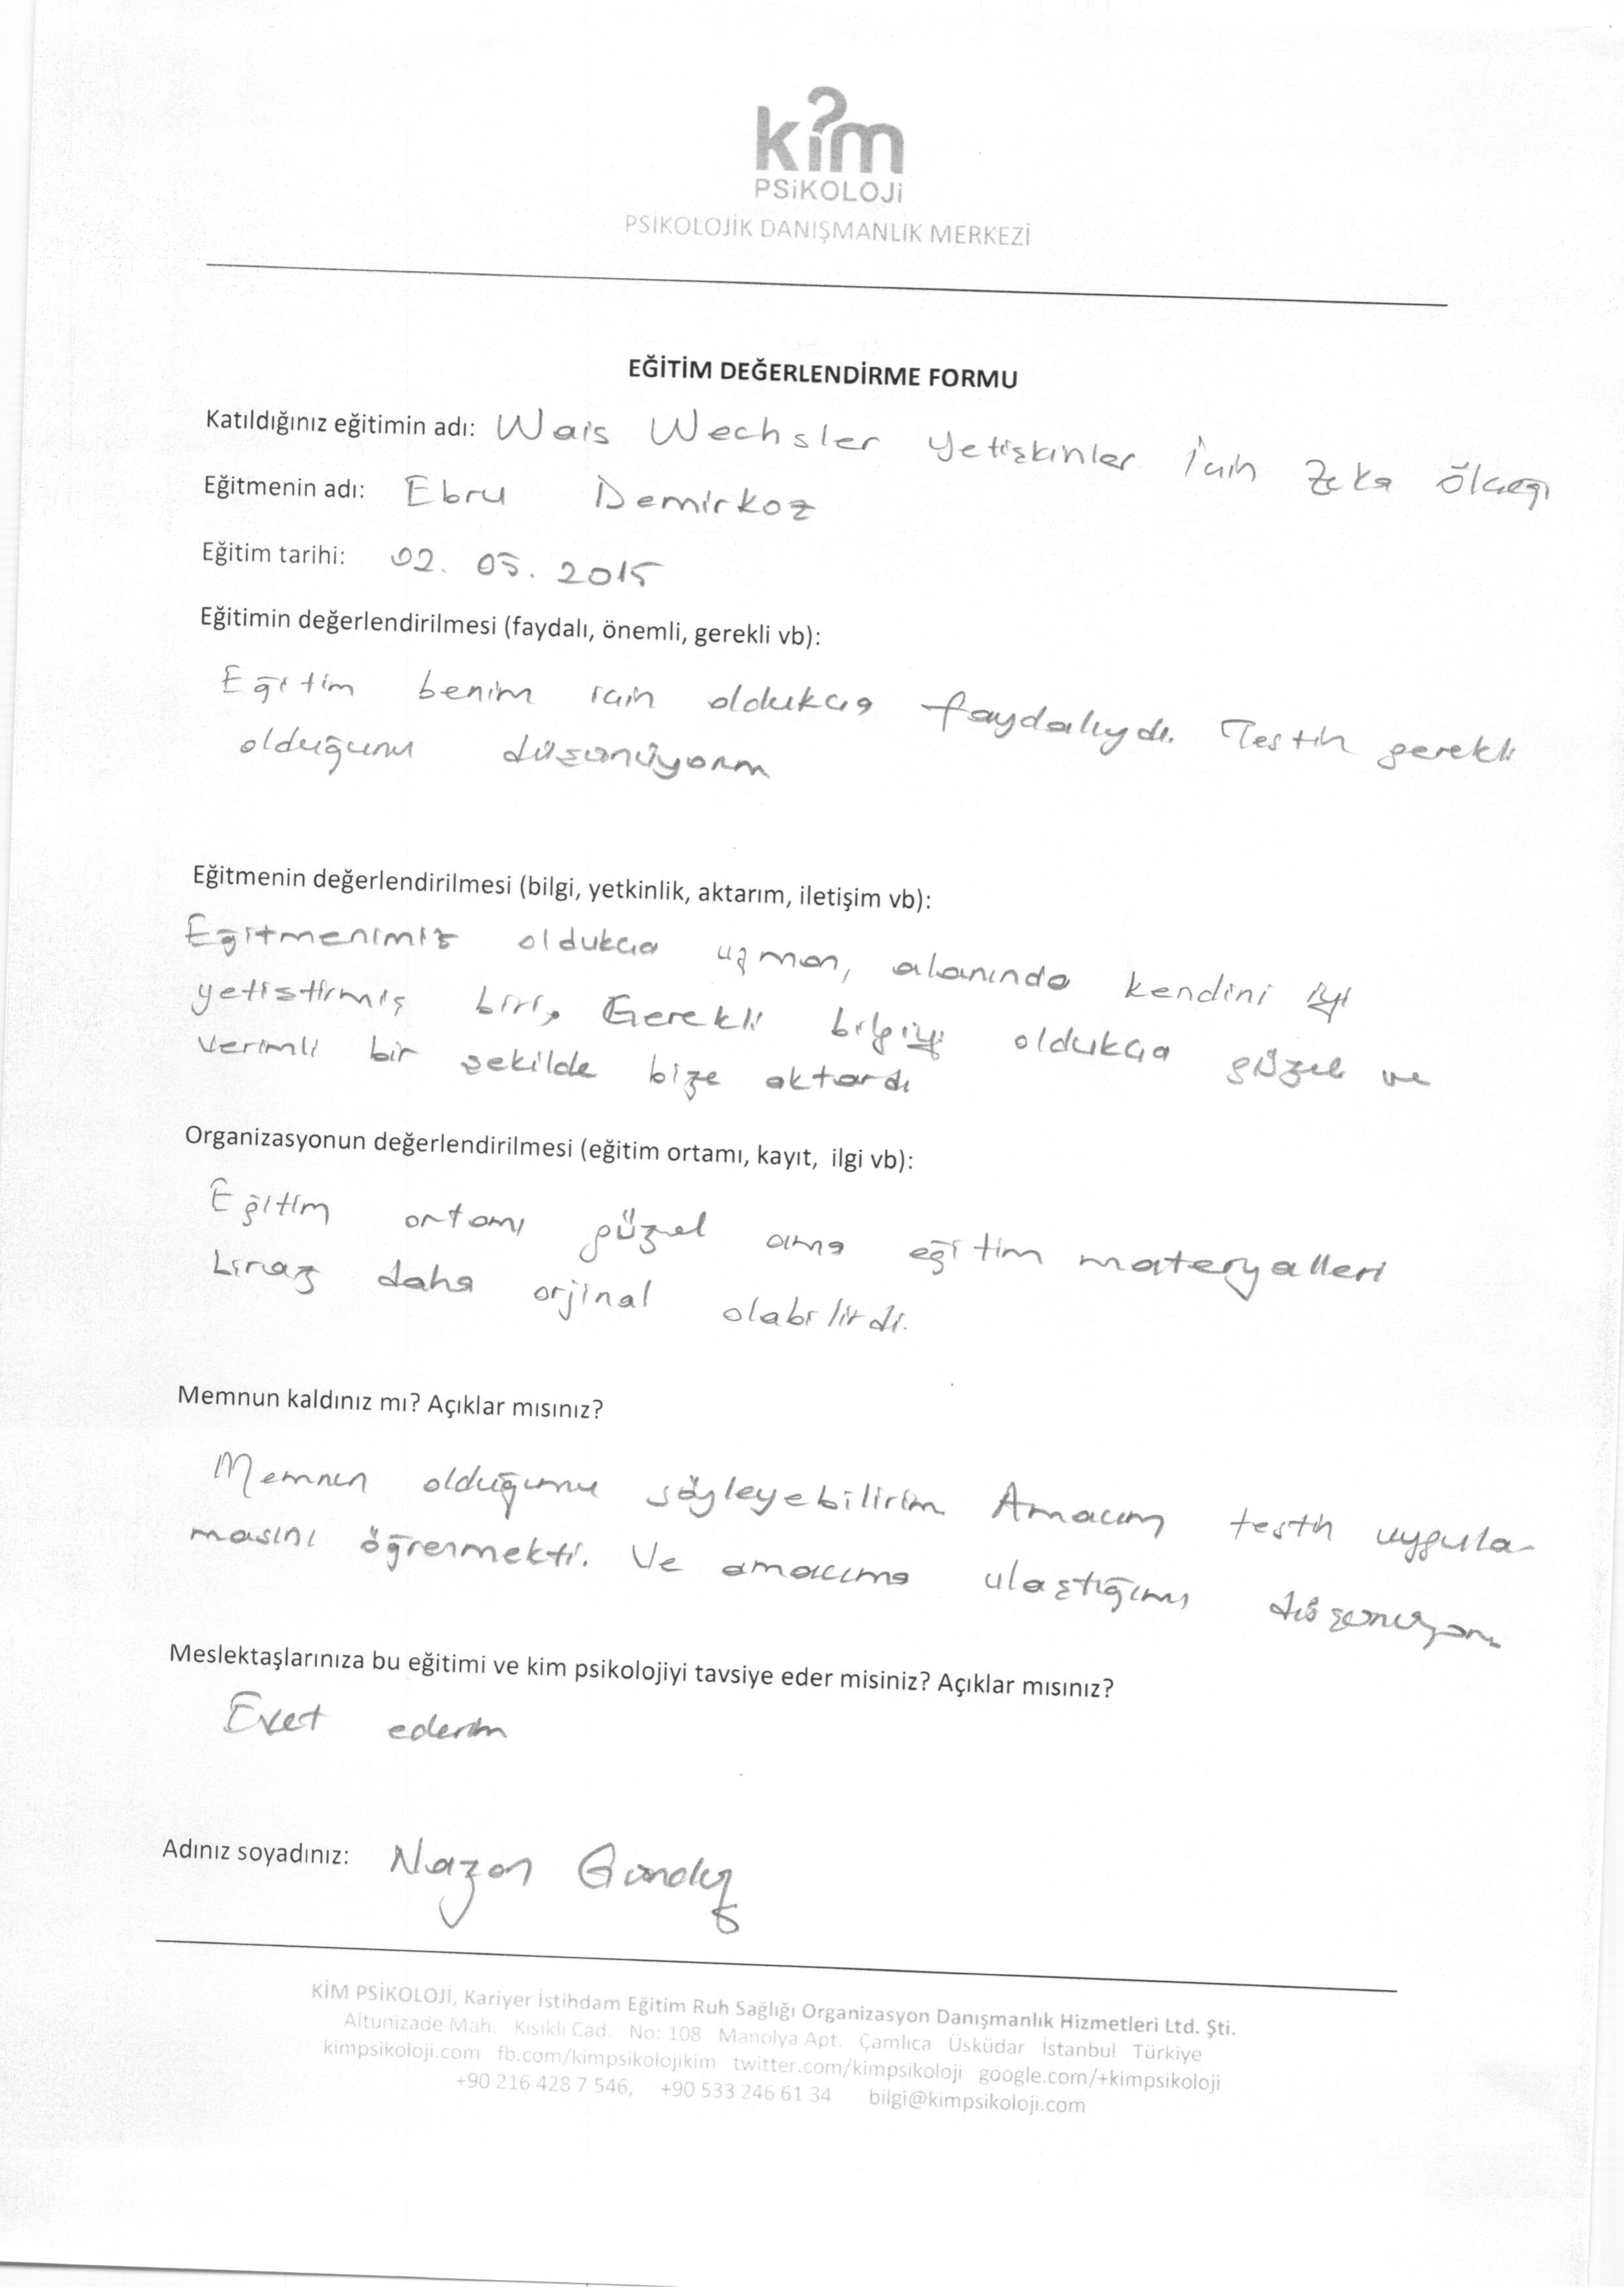 kim
PSiKOLOJi
PSİKOLOJİK DANIŞMANLIK MERKEZİ
EĞİTİM DEĞERLENDİRME FORMU
Katıldığınız eğitimin adı: Wais Wechsler Yetişkinler İçin Zeka Ölçeği
Eğitmenin adı: Ebru Demirkoz
Eğitim tarihi: 02. 05. 2015
Eğitimin değerlendirilmesi (faydalı, önemli, gerekli vb):
Eğitim benim için oldukça faydalıydı. Testin gerekli
olduğunu düşünüyorum
Eğitmenin değerlendirilmesi (bilgi, yetkinlik, aktarım, iletişim vb):
Eğitmenimiz oldukça uzman, alanında kendini iyi
yetiştirmiş biri, Gerekli bilgiyi oldukça güzel ve
verimli bir şekilde bize aktardı
Organizasyonun değerlendirilmesi (eğitim ortamı, kayıt, ilgi vb):
Eğitim ortamı güzel ama eğitim materyalleri
biraz daha orjinal olabilirdi.
Memnun kaldınız mı? Açıklar mısınız?
Memnun olduğumu söyleyebilirim Amacım testin uygula-
masını öğrenmekti. Ve amacıma ulaştığımı düşünüyorum
Meslektaşlarınıza bu eğitimi ve kim psikolojiyi tavsiye eder misiniz? Açıklar mısınız?
Evet ederim
Adınız soyadınız: Nazan Gündüz
KİM PSİKOLOJİ, Kariyer İstihdam Eğitim Ruh Sağlığı Organizasyon Danışmanlık Hizmetleri Ltd. Şti.
Altunizade Mah. Kısıklı Cad. No: 108 Manolya Apt. Çamlıca Üsküdar İstanbul Türkiye
kimpsikoloji.com fb.com/kimpsikolojikim twitter.com/kimpsikoloji google.com/+kimpsikoloji
+90 216 428 7 546, +90 533 246 61 34 bilgi@kimpsikoloji.com